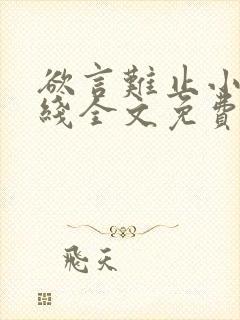 欲言難止小
綫全文免費
飛天